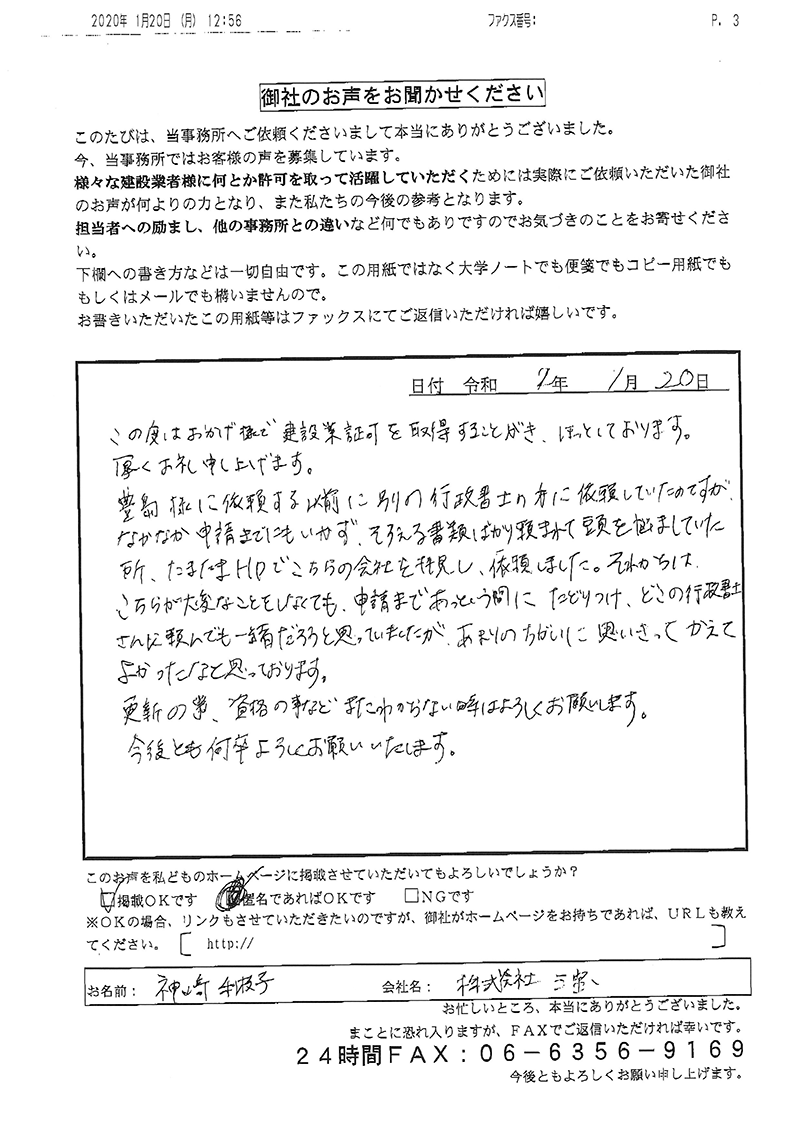 2020年 1月20日 (月) 12:56 ファクス番号: P. 3
御社のお声をお聞かせください
このたびは、当事務所へご依頼くださいまして本当にありがとうございました。
今、当事務所ではお客様の声を募集しています。
様々な建設業者様に何とか許可を取って活躍していただくためには実際にご依頼いただいた御社
のお声が何よりの力となり、また私たちの今後の参考となります。
担当者への励まし、他の事務所との違いなど何でもありですのでお気づきのことをお寄せくださ
い。
下欄への書き方などは一切自由です。この用紙ではなく大学ノートでも便箋でもコピー用紙でも
もしくはメールでも構いませんので。
お書きいただいたこの用紙等はファックスにてご返信いただければ嬉しいです。
日付 令和 2年 1月 20日
この度はおかげ様で建設業許可を取得することができ、ほっとしております。
厚くお礼申し上げます。
豊島様に依頼する以前に別の行政書士の方に依頼していたのですが、
なかなか申請までにもいかず、そろえる書類ばかり頼まれて頭を悩ましていた
所、たまたまHPでこちらの会社を発見し、依頼しました。それからは、
こちらが大変なことをしなくても、申請まであっという間にたどりつけ、どこの行政書士
さんに頼んでも一緒だろうと思っていましたが、あまりのちがいに思いきってかえて
よかったなと思っております。
更新の事、資格の事など またわからない時はよろしくお願いします。
今後とも何卒よろしくお願いいたします。
このお声を私どものホームページに掲載させていただいてもよろしいでしょうか?
□掲載OKです □匿名であればOKです □NGです
※OKの場合、リンクもさせていただきたいのですが、御社がホームページをお持ちであれば、URLも教え
てください。 [ http:// ]
お名前: 神崎 会社名: 株式会社
お忙しいところ、本当にありがとうございました。
まことに恐れ入りますが、FAXでご返信いただければ幸いです。
24時間FAX:06-6356-9169
今後ともよろしくお願い申し上げます。